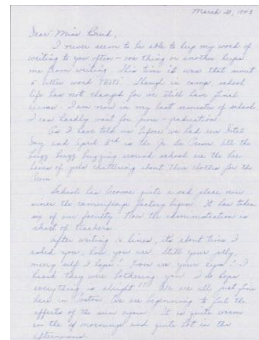 March 21, 1943
Dear Miss Breed,
I never seem to be able to keep my word of
writing to you often - one thing or another keeps
me from writing. This time it was that
4 letter word "TEST". Though in camp, school
life has not changed for we still have final
exams. I am now in my last semester of school
I can hardly wait for June - graduation.
As I have told you before we had our
Day and April 3rd is the Jr. Sr. Prom. All the
buzz buzz buzzing around school are the
of girls chattering about their clothes for the
Prom.
School has become quite a sad place now
since the army
of our faculty. Now the administration is
short of teachers.
After writing 16 lines, its about time I
asked you, how you are. Still your jolly,
merry self I hope! How are your eyes? I
heard they were bothering you. I do hope
everything is alright!!! We are all just fine
here in Poston. We are beginning to feel the
effects of the sun again. It is quite warm
in the mornings and quite hot in the
afternoons.